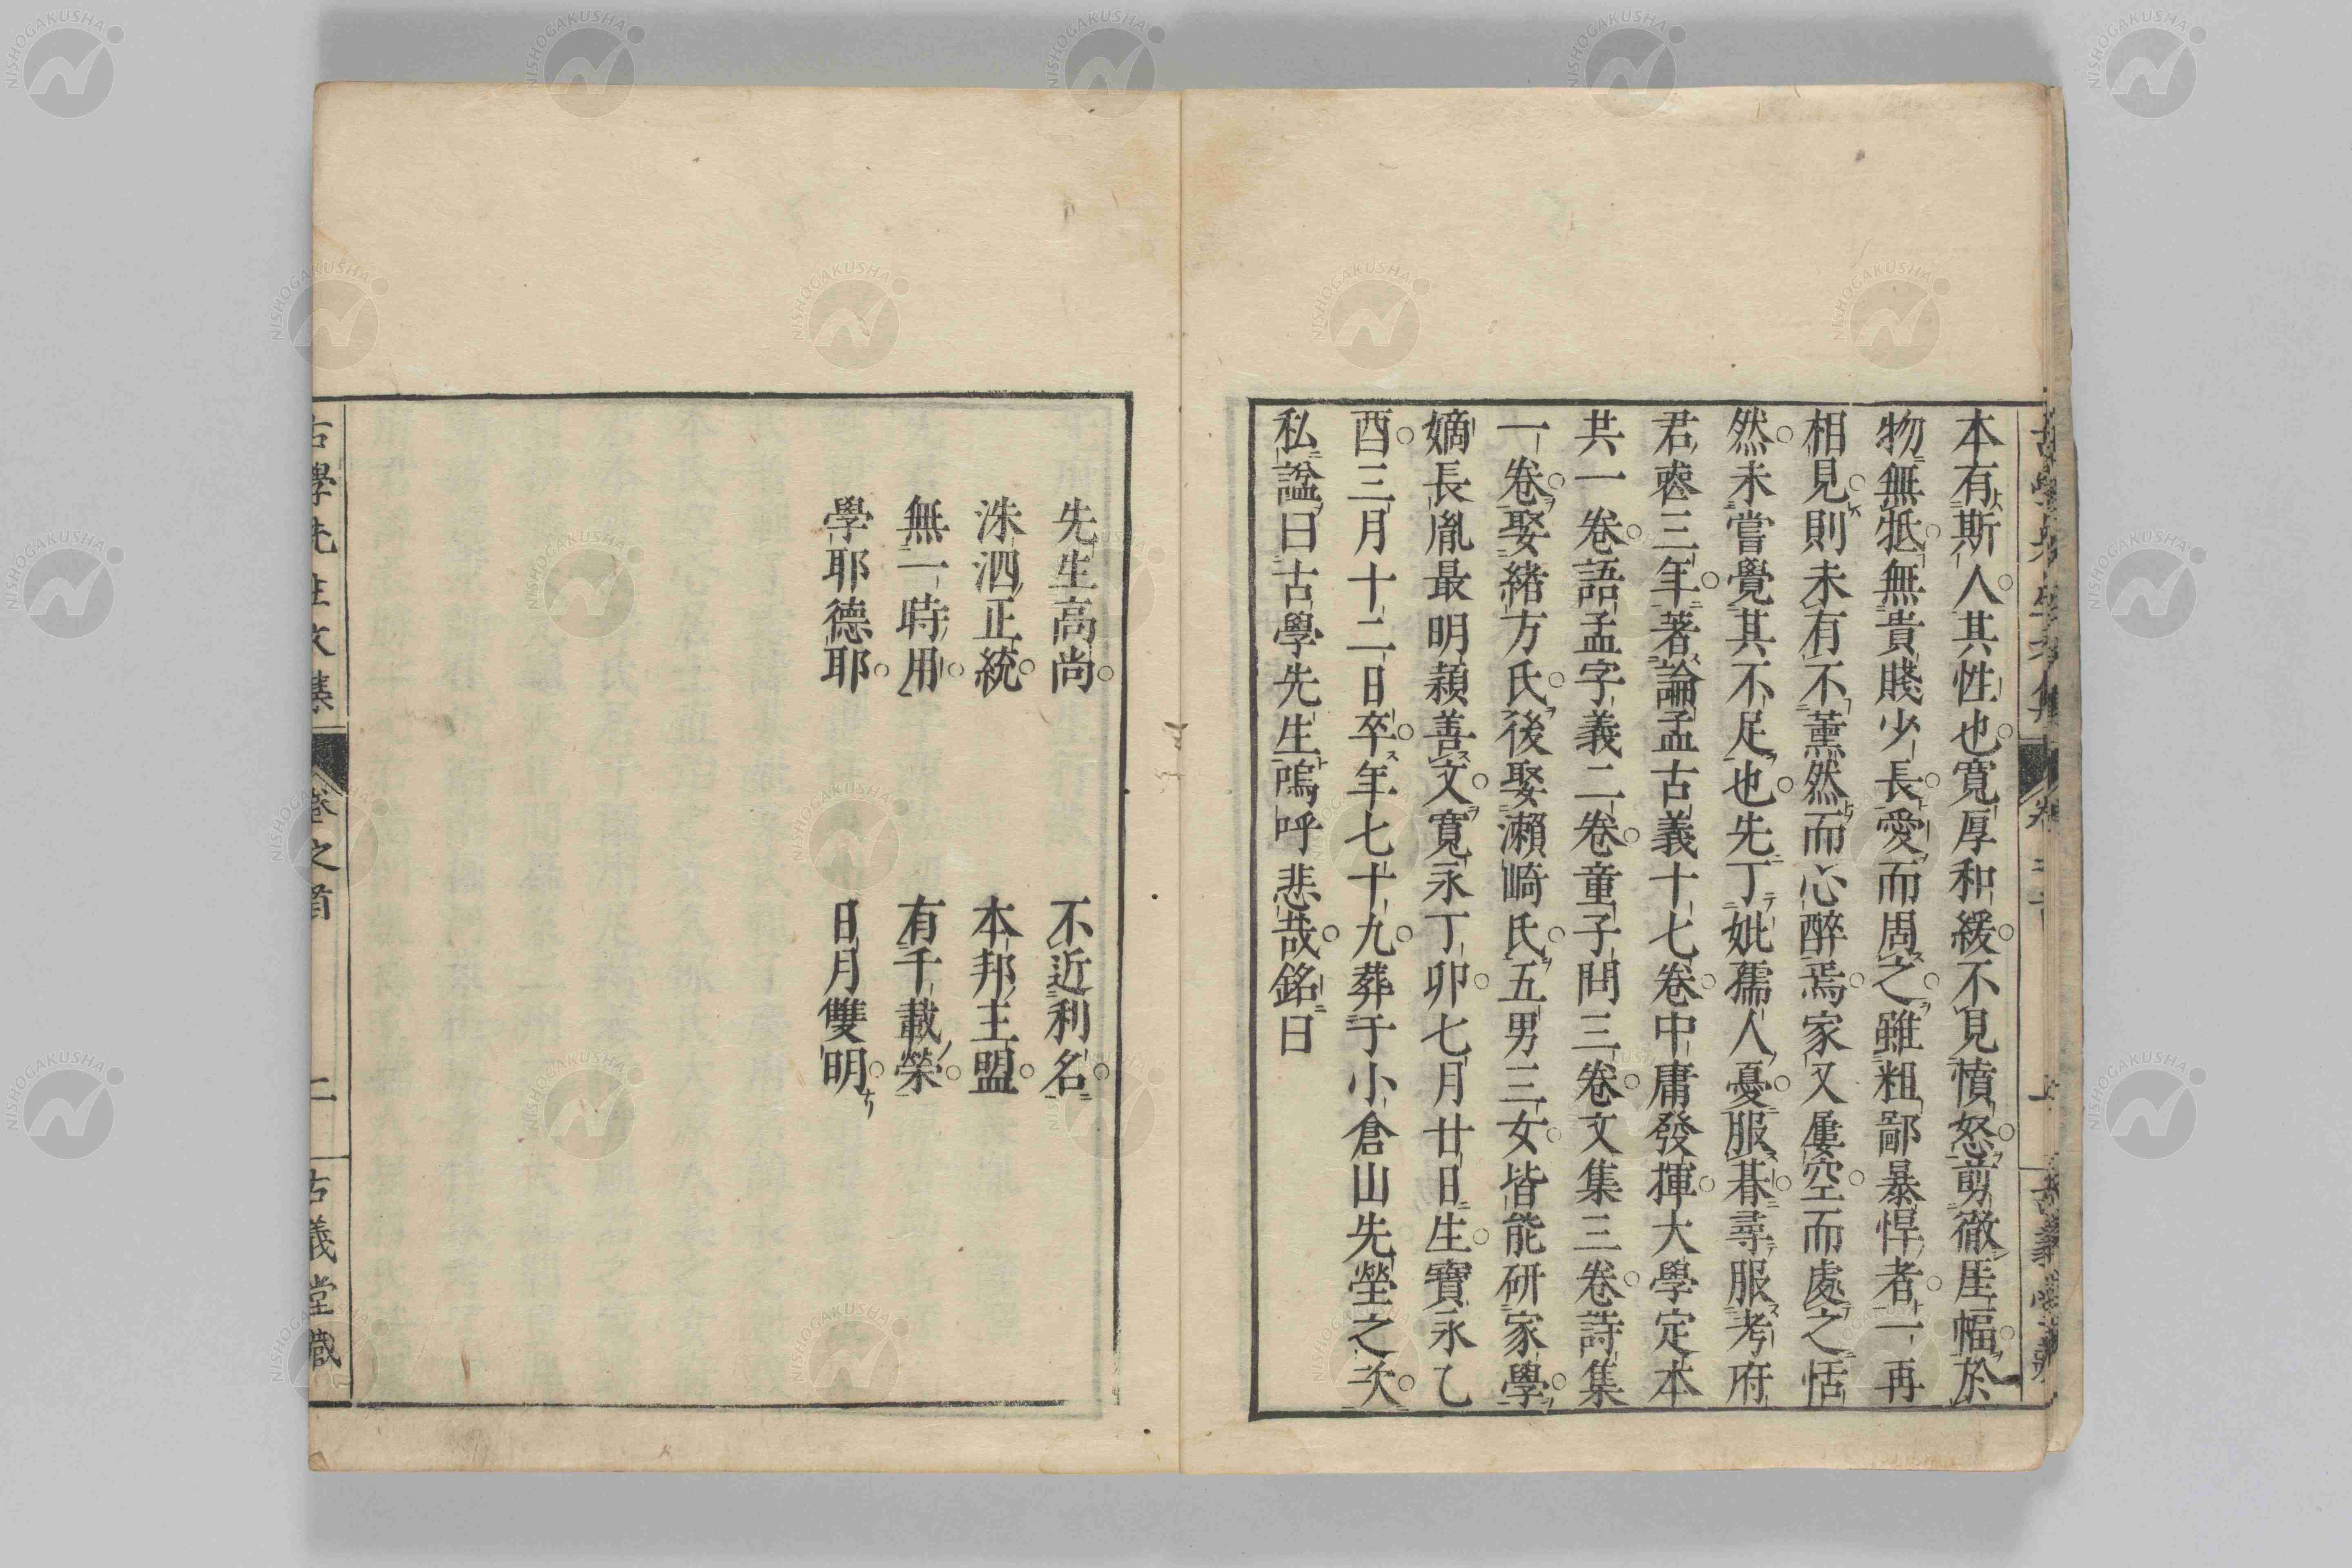 本有斯人。其性也。寛厚和緩。不見憤怒。剪徹厓幅。於
物無牴。無貴賤少長。愛而周之。雖粗鄙暴悍者。一再
相見。則未有不薫然而心醉焉。家又屢空。而處之恬
然。未嘗覺其不足也。先丁妣孺人憂。服朞。尋服考府
君喪三年。著論孟古義十七卷。中庸發揮。大學定本
共一卷。語孟字義二卷。童子問三卷。文集三卷。詩集
一卷。娶緒方氏。後娶瀨崎氏。五男三女。皆能研家學。
嫡長胤最明穎善文。寛永丁卯。七月廿日生。寶永乙
酉。三月十二日卒。年七十九。葬于小倉山先塋之次。
私諡曰古學先生嗚呼悲哉。銘曰
先生高尚。 不近利名。
洙泗正統。 本邦主盟。
無一時用。 有千載榮。
學耶德耶。 日月雙明。
古學先生文集 卷之首 二 古義堂藏
NISHOGAKUSHA